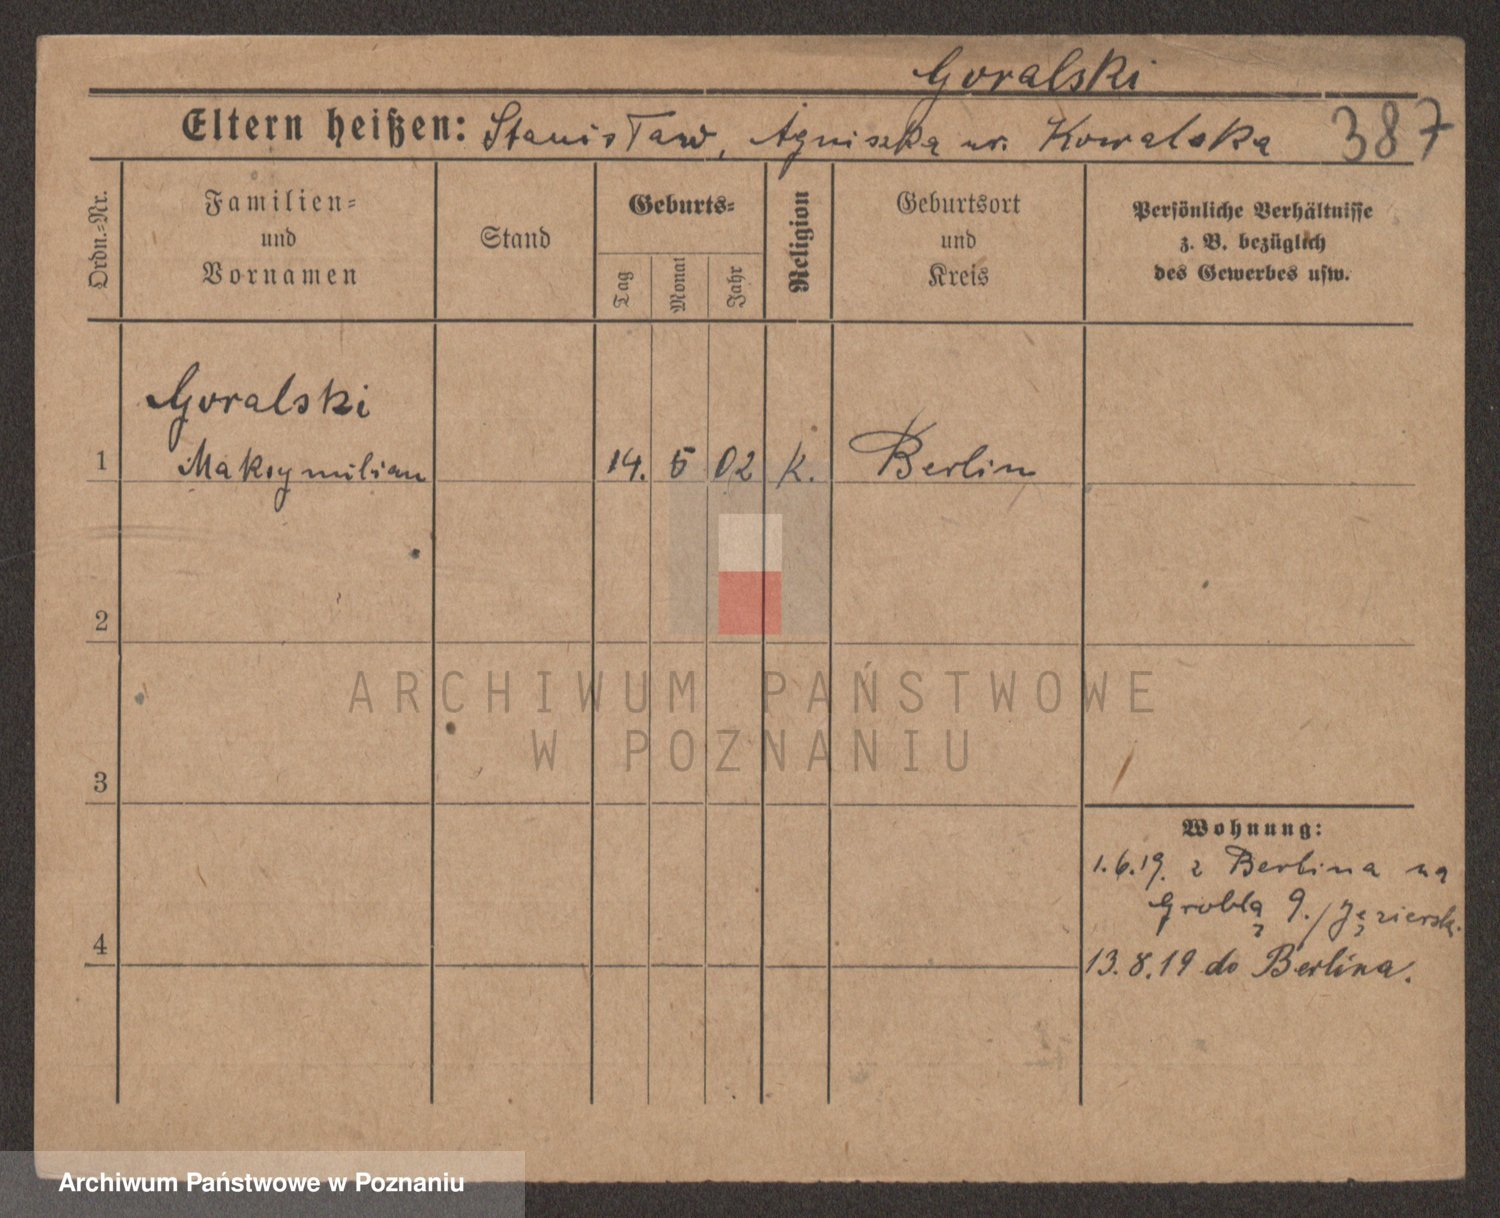 Goralski
Eltern heißen: Stanisław, Agniszka ur. Kowalska 387
Ordn.-Nr.
Familien-
und
Vornamen
Stand
Geburts-
Tag
Monat
Jahr
Religion
Geburtsort
und
Kreis
Persönliche Verhältnisse
z. B. bezüglich
des Gewerbes usw.
Goralski
1 Maksymilian 14. 5 02 k. Berlin
2
ARCHIWUM PAŃSTWOWE
W POZNANIU
3
Wohnung:
1.6.19. z Berlina na
Groblą 9. / Jęziersk.
4
13.8.19 do Berlina.
Archiwum Państwowe w Poznaniu